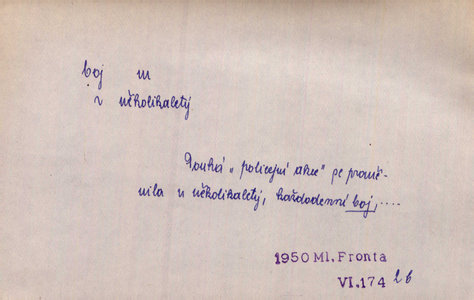 boj m
v několikaletý
Pouhá „policejní akce" se promě-
nila v několikaletý, každodenní boj,....
1950 Ml. Fronta
VI.174 26